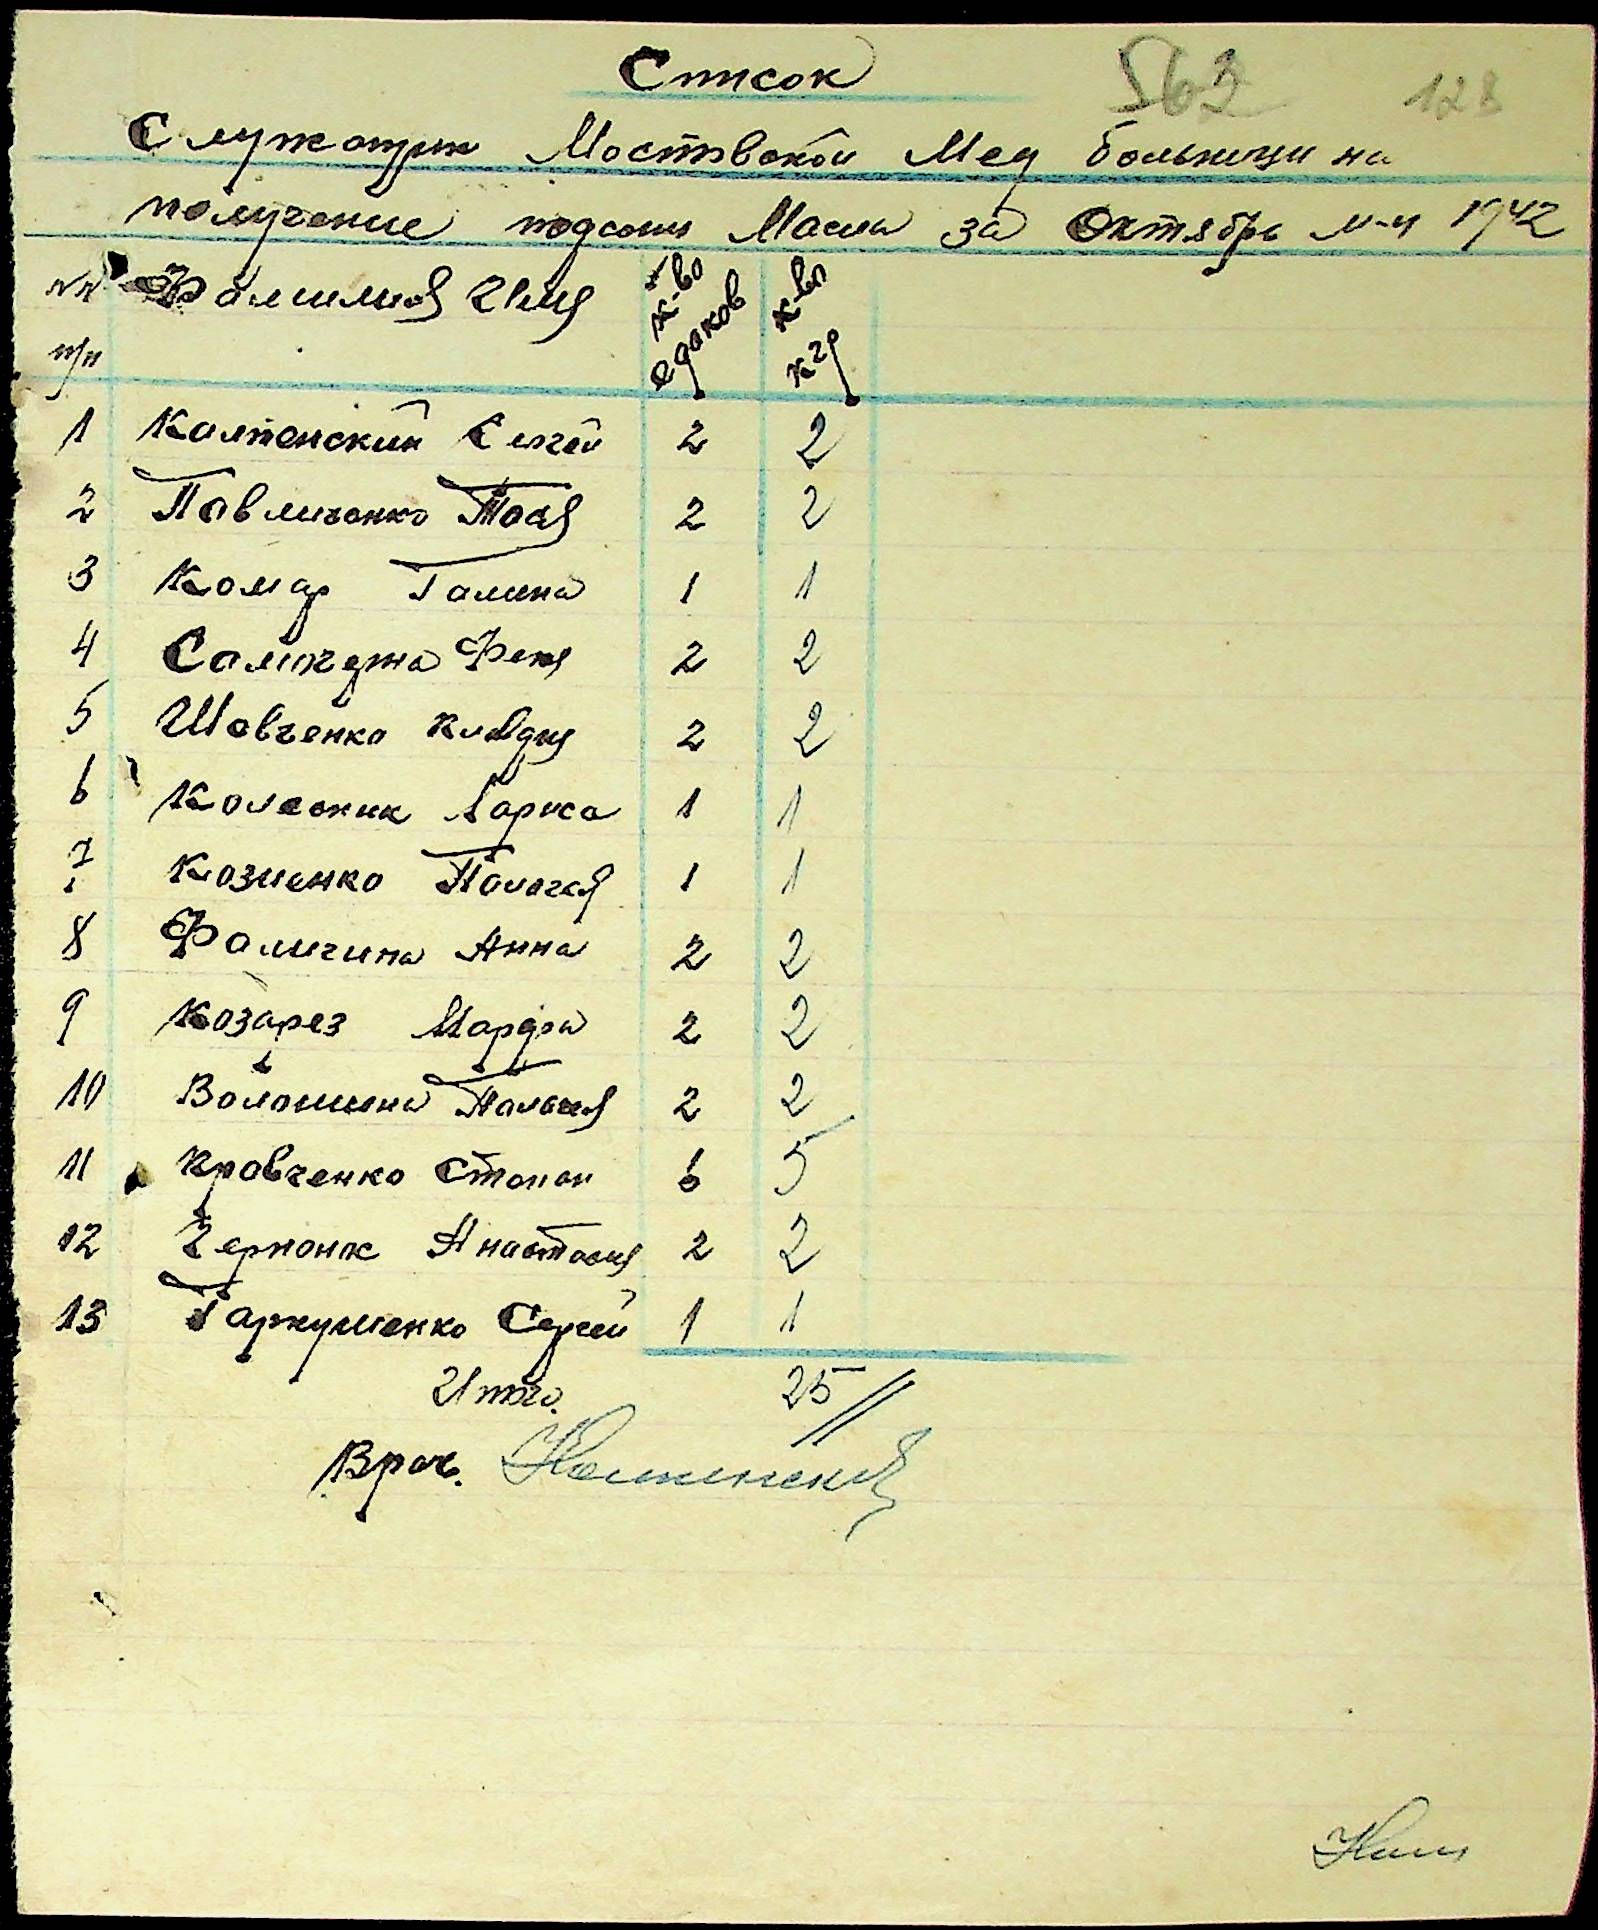 Список 563 128
Служащих Мостовской Мед больници на
получение подсолн Масла за Октябрь м-ц 1942
№№ п/п Фамилия Имя к-во едаков к-во кгр
1 Калтенский Сергей 2 2
2 Павличенко Тося 2 2
3 Комар Галина 1 1
4 Фекя 2 2
5 Шевченко Клавдия 2 2
6 Колесник Лариса 1 1
7 Козиенко Палагея 1 1
8 Фаличина Анна 2 2
9 Козарез Марфа 2 2
10 Волошина Палагея 2 2
11 Кравченко Степан 6 5
12 Анастасия 2 2
13 Гаркушенко Сергей 1 1
Итого. 25
Врач.